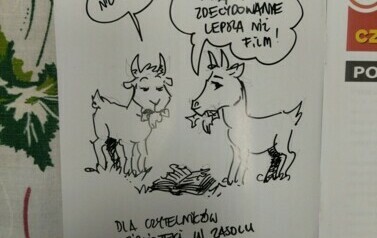 NO
ZDECYDOWANIE
LEPSZA NIŻ
FILM!
DLA CZYTELNIKÓW
W ZASOLU
CZ
PO